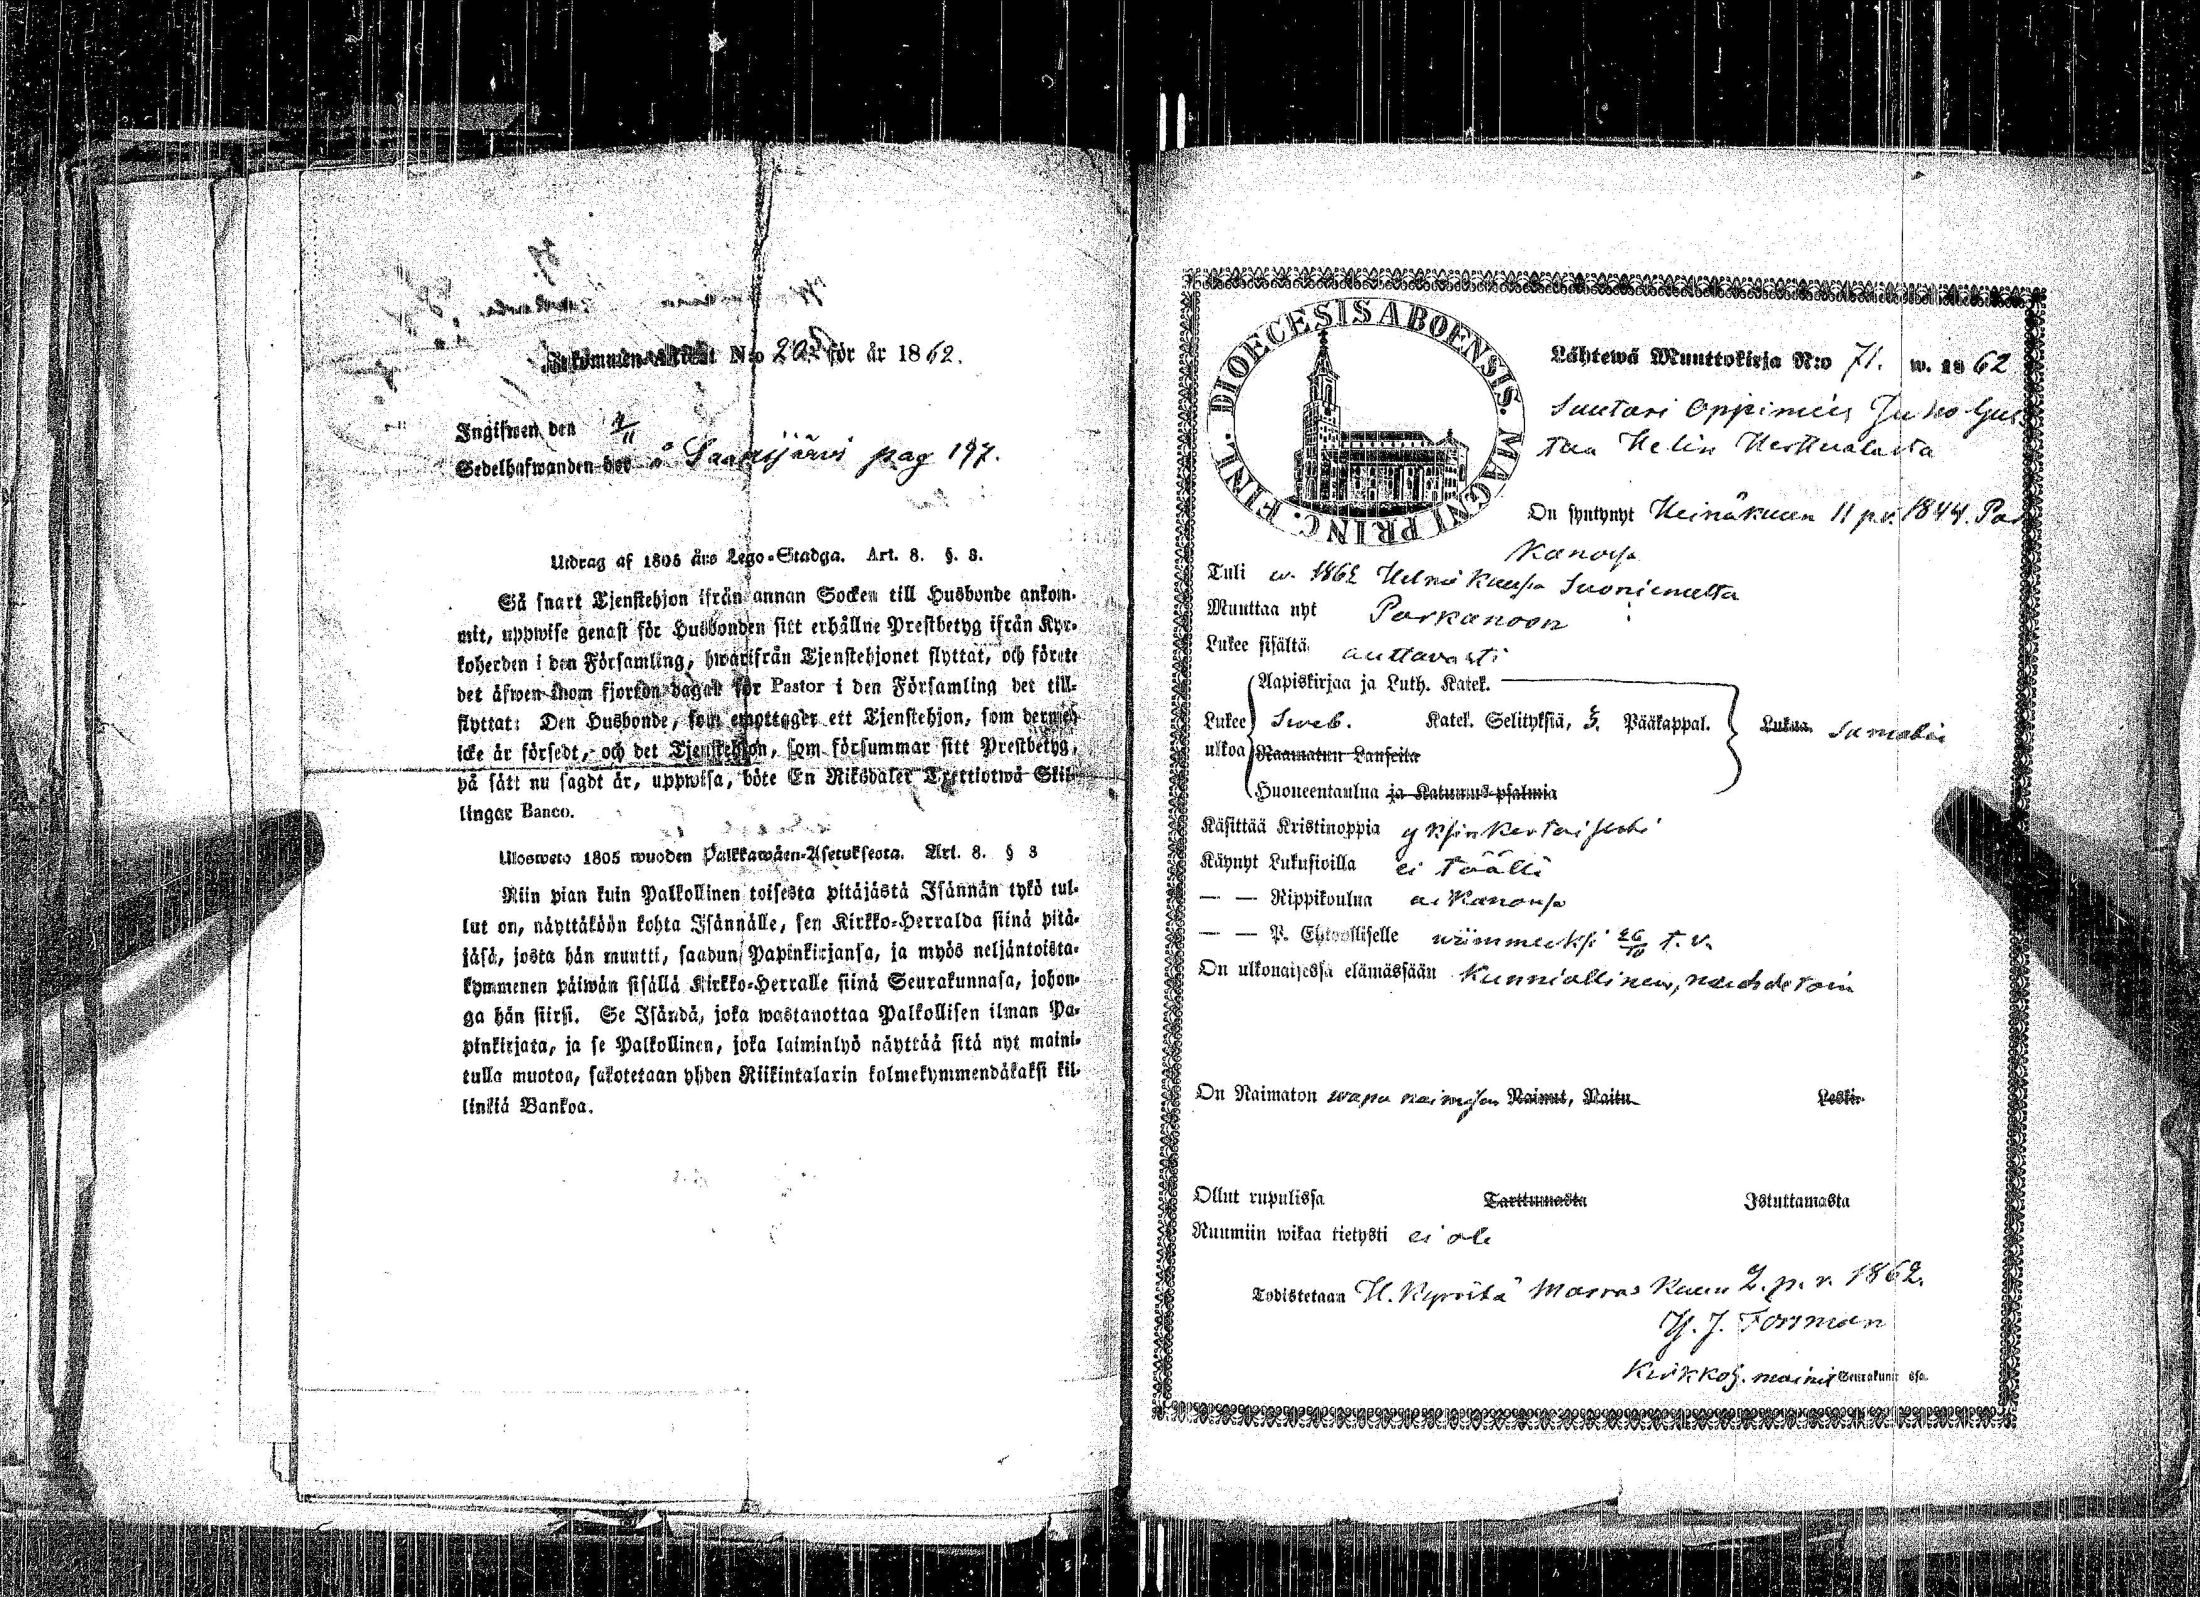 Inkommen Attest N:o 203 för år 1862.
Ingifwen den 9/11
Sedelhafwanden hos å Saarijärvi pag 197.
Utdrag af 1805 års Lego-Stadga. Art. 8. §. 3.
Så snart Tjenstehjon ifrån annan Socken till Husbonde ankom-
mit, uppwise genast för Husbonden sitt erhållne Prestbetyg ifrån Kyr-
koherden i den Församling, hwarifrån Tjenstehjonet flyttat, och förete
det äfwen inom fjorton dagar för Pastor i den Församling det till-
flyttat: Den Husbonde, som emottager ett Tjenstehjon, som dermed
icke är försedt, och det Tjenstehjon, som försummar sitt Prestbetyg,
på sätt nu sagdt är, uppwisa, böte En Riksdaler Trettiotwå Skil-
lingar Banco.
Ulosweto 1805 wuoden Palkkawäen-Asetuksesta. Art. 8. § 3
Niin pian kuin Palkollinen toisesta pitäjästä Isännän tykö tul-
lut on, näyttäköön kohta Isännälle, sen Kirkko-Herralda siinä pitä-
jäsä, josta hän muutti, saadun Papinkirjansa, ja myös neljäntoista-
kymmenen päiwän sisällä Kirkko-Herralle siinä Seurakunnasa, johon-
ga hän siirsi. Se Isändä, joka wastanottaa Palkollisen ilman Pa-
pinkirjata, ja se Palkollinen, joka laiminlyö näyttää sitä nyt maini-
tulla muotoa, sakotetaan yhden Riikintalarin kolmekymmendäkaksi kil-
linkiä Bankoa.
DIOECESIS ABOENSIS. MAGNI PRINC. FINL.
Lähtewä Muuttokirja N:o 71. w. 1862
Suutari Oppimies Juho Gus
taa Helin Herttualasta
On syntynyt Heinäkuun 11 p.v. 1844. Par
kanossa
Tuli w. 1862 Helmikuussa Suoniemelta
Muuttaa nyt Parkanoon
Lukee sisältä auttavasti
Aapiskirjaa ja Luth. Katek.
Lukee ulkoa Sweb. Katek. Selityksiä, 3. Pääkappal. Lukua
Raamatun Lauseita
Huoneentaulua ja Katumus-psalmia
Käsittää Kristinoppia yksinkertaisesti
Käynyt Lukusioilla ei täällä
— — Rippikoulua
— — P. Ehtoolliselle wiimmeeksi 26/10 t. v.
On ulkonaisessa elämässään Kunniallinen, nuhdetoin
On Naimaton wapa naimaan Nainut, Naitu Leski
Ollut rupulissa Tarttumasta Istuttamasta
Ruumiin wikaa tietysti ei ole
Todistetaan H. Kyröstä Marraskuun 2. p. v. 1862.
Forsman
Kirkkoh. mainit Seurakunn ssa.